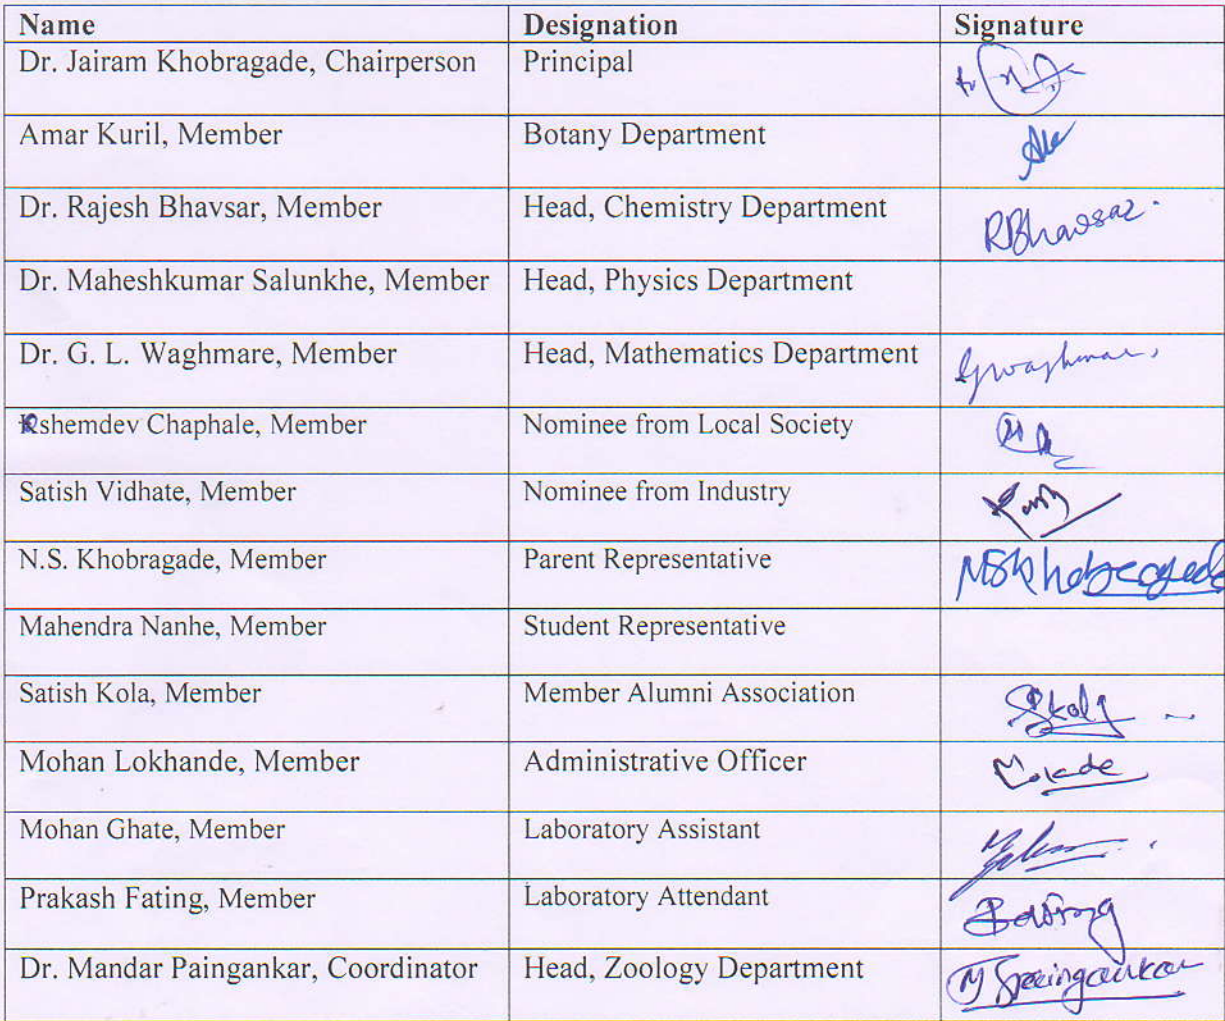 Name Designation Signature
Dr. Jairam Khobragade, Chairperson Principal
Amar Kuril, Member Botany Department
Dr. Rajesh Bhavsar, Member Head, Chemistry Department RBhavsar.
Dr. Maheshkumar Salunkhe, Member Head, Physics Department
Dr. G. L. Waghmare, Member Head, Mathematics Department
Kshemdev Chaphale, Member Nominee from Local Society
Satish Vidhate, Member Nominee from Industry
N.S. Khobragade, Member Parent Representative NSKhobragade
Mahendra Nanhe, Member Student Representative
Satish Kola, Member Member Alumni Association
Mohan Lokhande, Member Administrative Officer
Mohan Ghate, Member Laboratory Assistant
Prakash Fating, Member Laboratory Attendant
Dr. Mandar Paingankar, Coordinator Head, Zoology Department